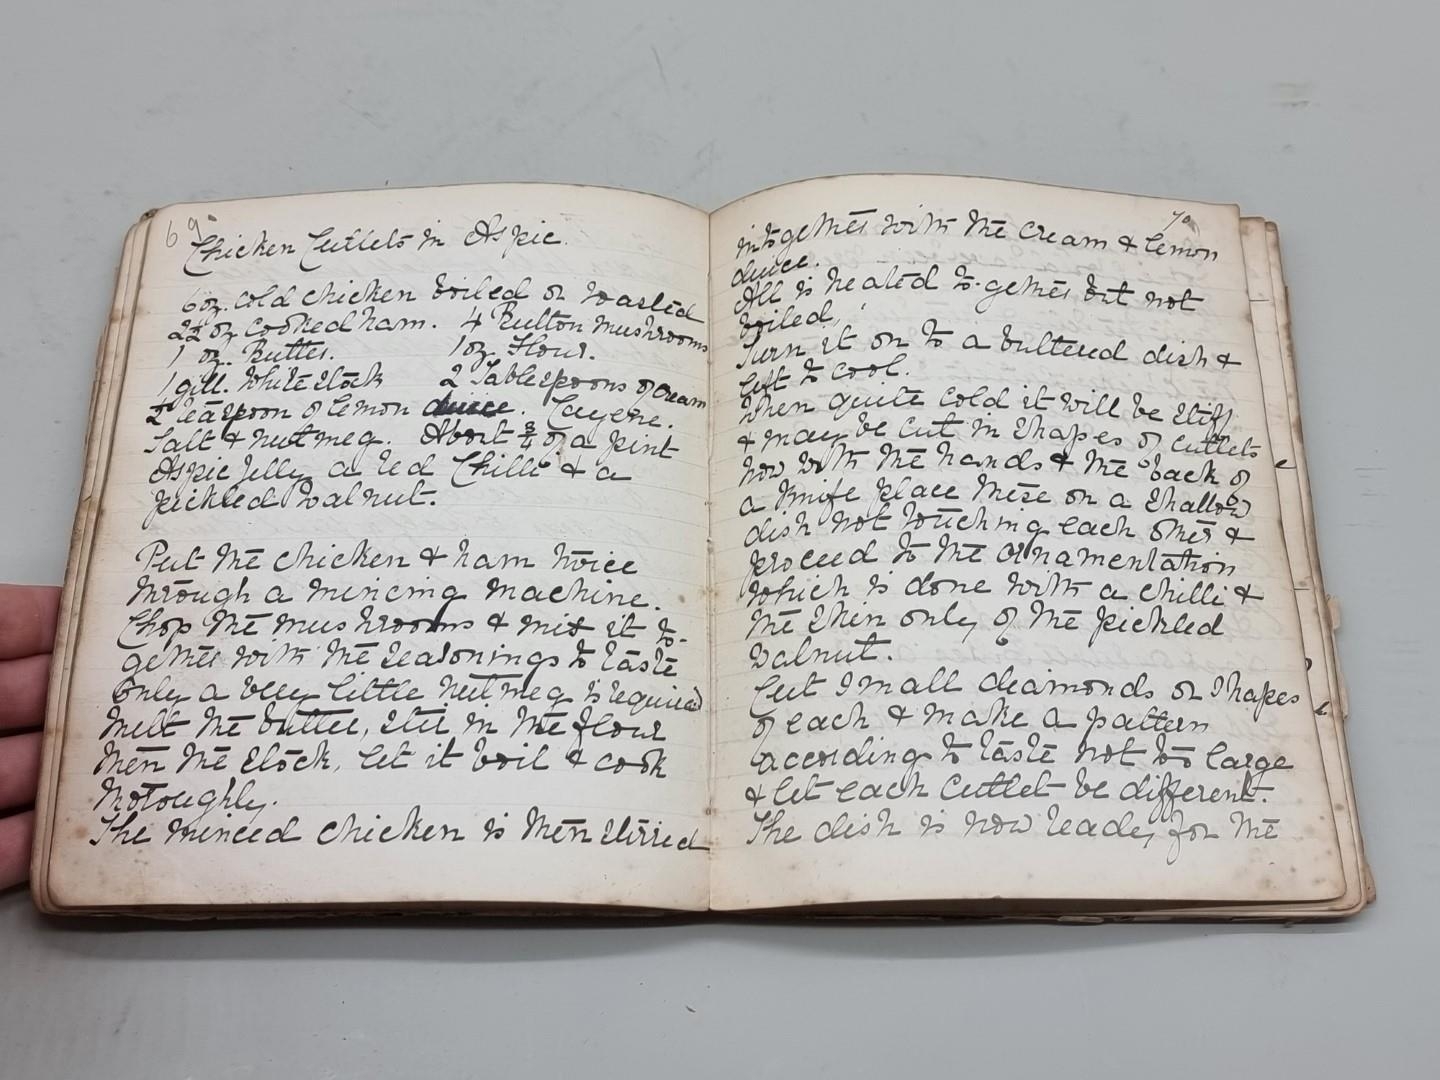 69
Chicken Cutlets in Aspic.
6 oz. cold chicken boiled or roasted
2½ oz cooked ham. 4 Button mushrooms
1 oz. Butter. 1 oz. Flour.
1 gill. White stock 2 Tablespoons of cream
2 Teaspoon of lemon juice. Cayene.
Salt & nutmeg. About ¾ of a pint
Aspic Jelly a red Chilli & a
pickled walnut.
Put the chicken & ham twice
through a mincing machine.
Chop the mushrooms & mix it to-
gether with the seasonings to taste
only a very little nutmeg is required
melt the butter, stir in the flour
then the stock, let it boil & cook
thoroughly.
The minced chicken is then stirred
70
in together with the cream & lemon
juice.
All is heated to-gether but not
boiled,
Turn it on to a buttered dish &
left to cool.
when quite cold it will be stiff
& may be cut in shapes of cutlets
now with the hands & the back of
a knife place these on a shallow
dish not touching each other &
proceed to the ornamentation
which is done with a chilli &
the skin only of the pickled
walnut.
Cut small diamonds or shapes
of each & make a pattern
according to taste not too large
& let each cutlet be different.
The dish is now ready for the